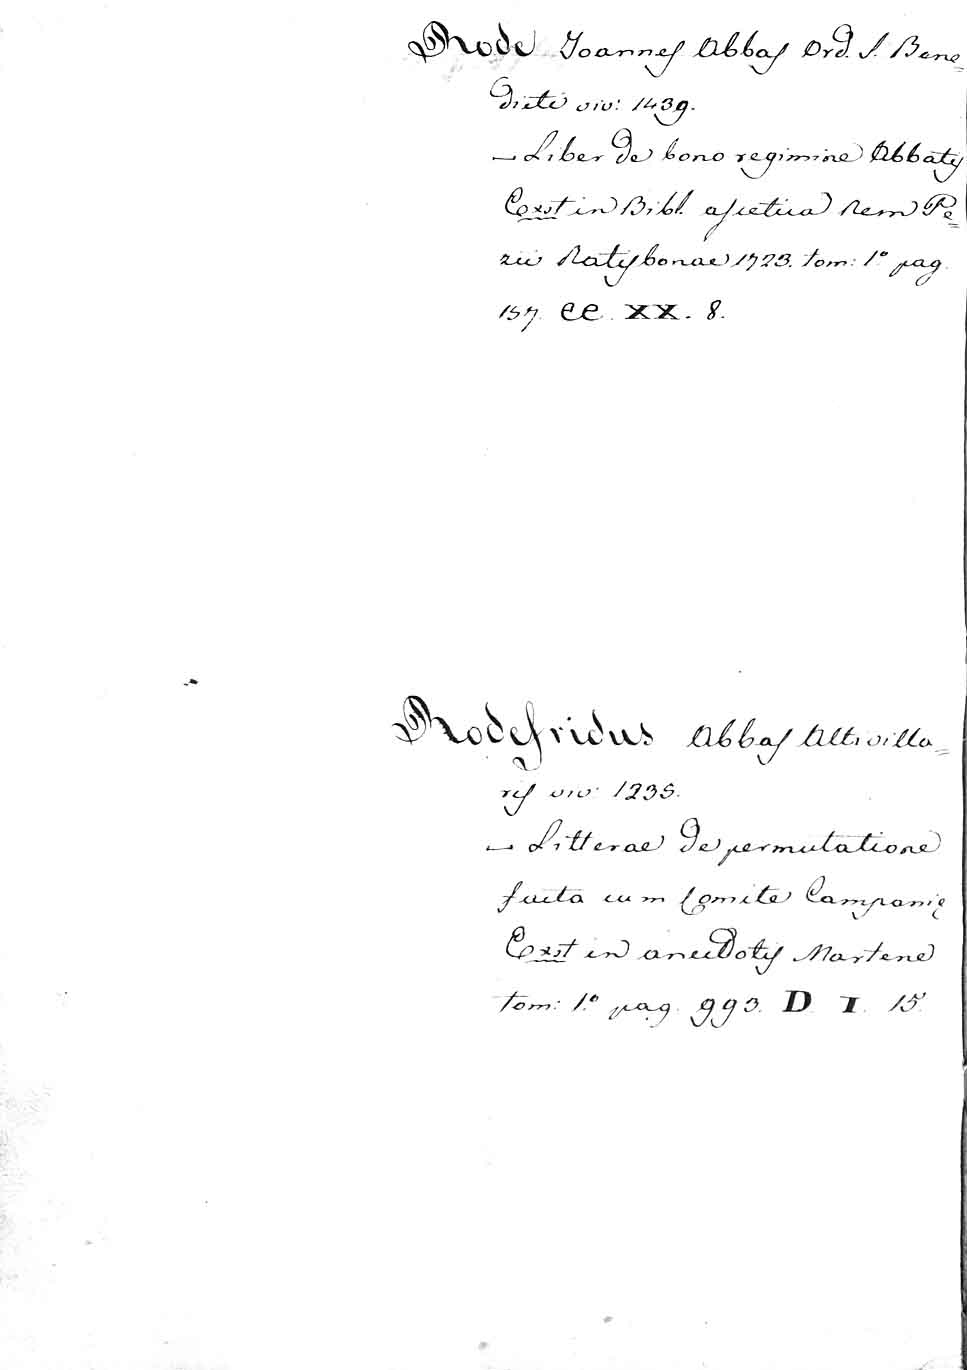 Rode Joannes Abbas Ord. S. Bene=
dicti viv: 1439.
— Liber de bono regimine Abbatis
Exst in Bibl. ascetica Rem Pe=
zii Ratisbonae 1723. tom: 1.° pag.
157. CC. XX. 8.
Rodefridus Abbas Altivilla=
ris viv: 1235.
— Litterae de permutatione
facta cum Comite Campanię
Exst in anecdotis Martene
tom: 1.° pag. 993. D. I. 15.